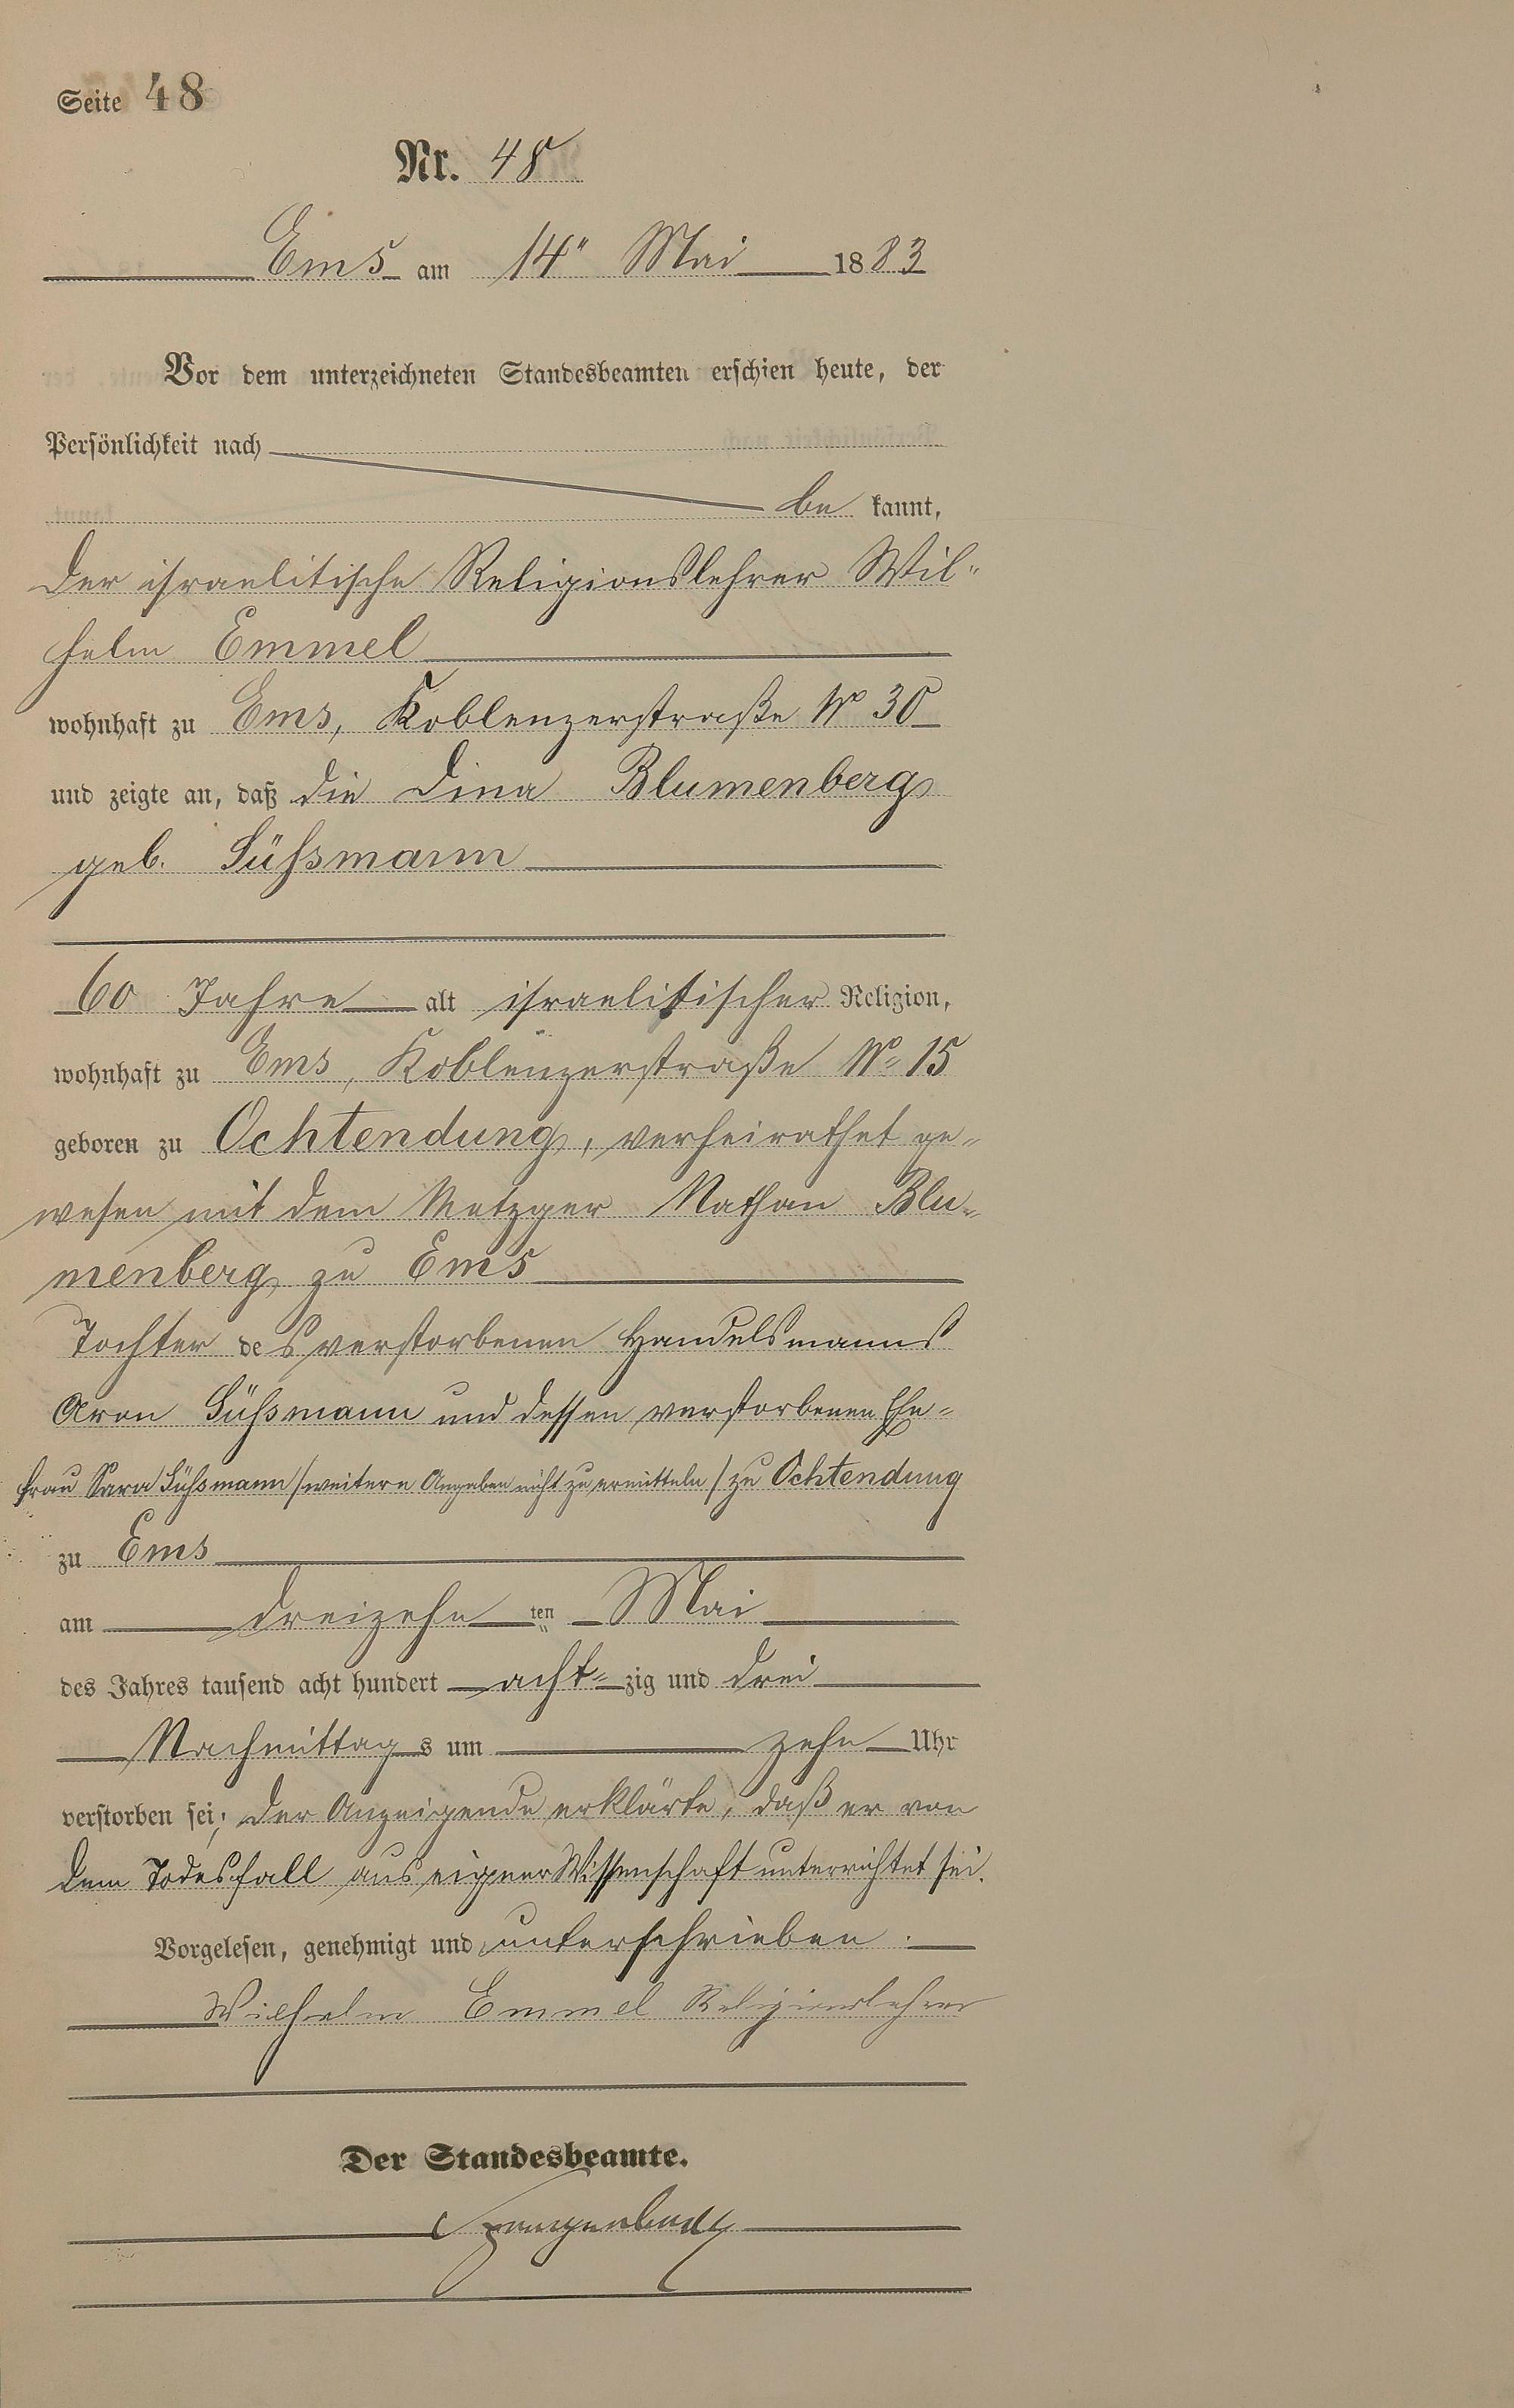 Seite 48
Nr. 48
Ems am 14" Mai 1883
Vor dem unterzeichneten Standesbeamten erschien heute, der
Persönlichkeit nach
be kannt,
der israelitische Religionslehrer Wil-
helm Emmel
wohnhaft zu Ems, Koblenzerstraße No 30
und zeigte an, daß die Dina Blumenberg
geb. Süßsmann
60 Jahre alt israelitischer Religion,
wohnhaft zu Ems, Koblenzerstraße No 15
geboren zu Ochtendung, verheirathet ge-
wesen mit dem Metzger Nathan Blu-
menberg zu Ems
Tochter des verstorbenen Handelsmanns
Aron Sühsmann und dessen verstorbenen Ehe-
frau Sara Sühsmann / weitere Angaben nicht zu ermitteln / zu Ochtendung
zu Ems
am dreizehn ten Mai
des Jahres tausend acht hundert acht-zig und drei
Nachmittags um zehn Uhr
verstorben sei; der Anzeigende erklärte, daß er von
dem Todesfall aus eigner Wissenschaft unterrichtet sei.
Vorgelesen, genehmigt und unterschrieben.
Wilhelm Emmel Religionslehrer
Der Standesbeamte.